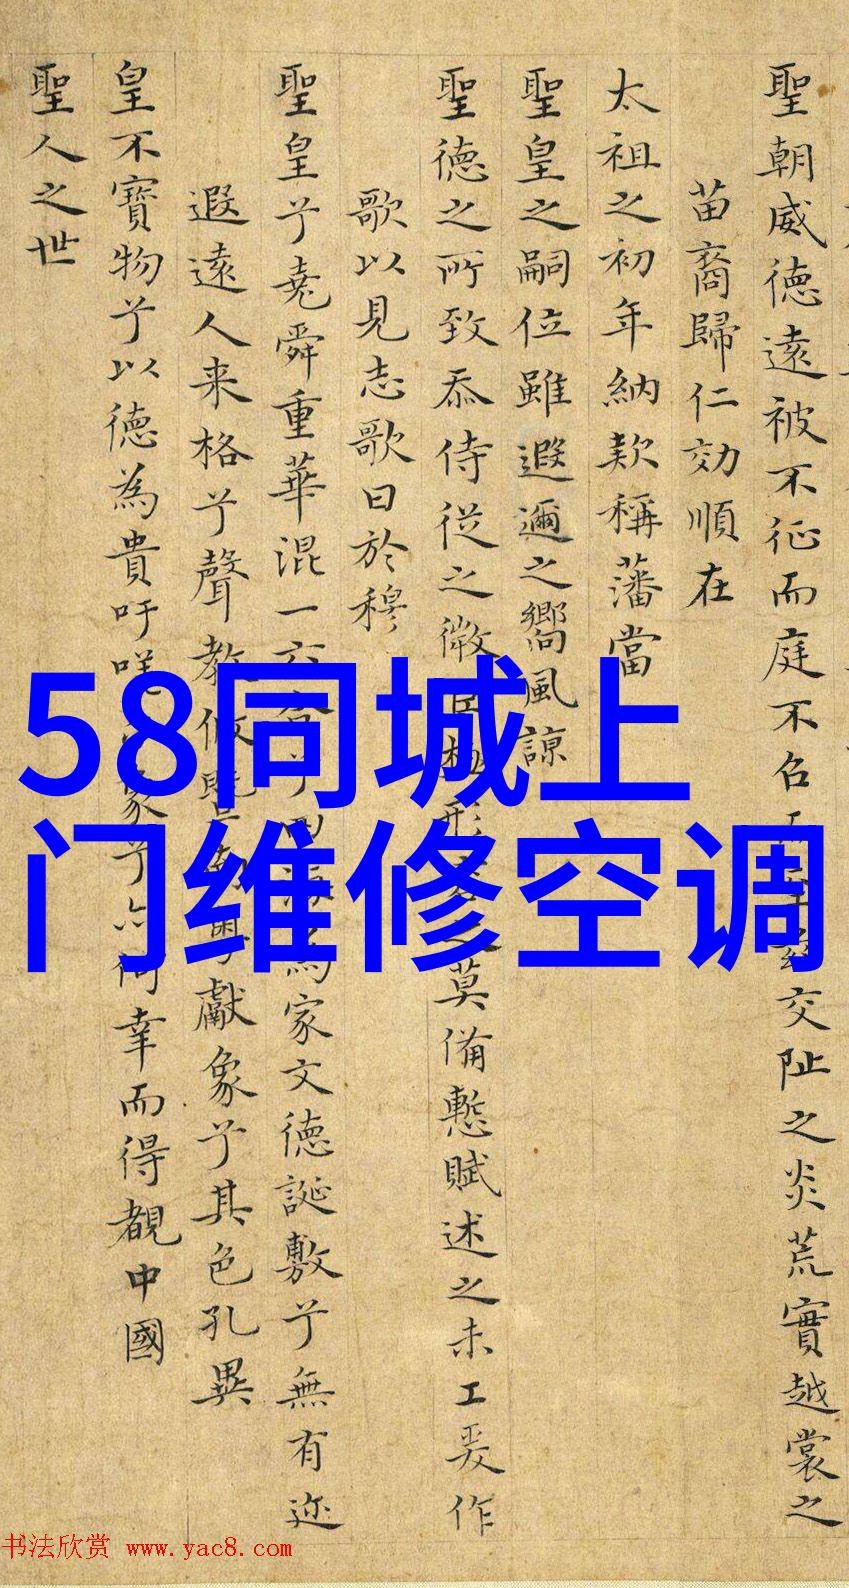 聖朝威德遠被不征而庭不召至交阯之炎荒實越裳之
苗裔歸仁効順在
太祖之初年納款稱藩當
聖皇之嗣位雖遐邇之嚮風諒
聖德之所致忝侍從之微臣極形之莫備慙賦述之未工爰作
歌以見志歌曰於穆
聖皇兮堯舜重華混一六合兮四海為家文德誕敷兮無有迩
遐遠人来格兮聲教攸暨粤獻象兮其色孔異
皇不寶物兮以德為貴吁嗟象兮亦何幸而得覩中國
聖人之世
58同城上
门维修空调
书法欣赏 www.yac8.com